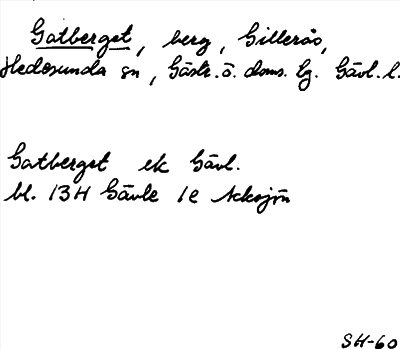 Gatberget, berg, Gillerås,
Hedesunda sn, Gästr. ö. doms. lg. Gävl. l.
Gatberget ek Gävl.
bl. 13H Gävle 1e Acksjön
SH-60